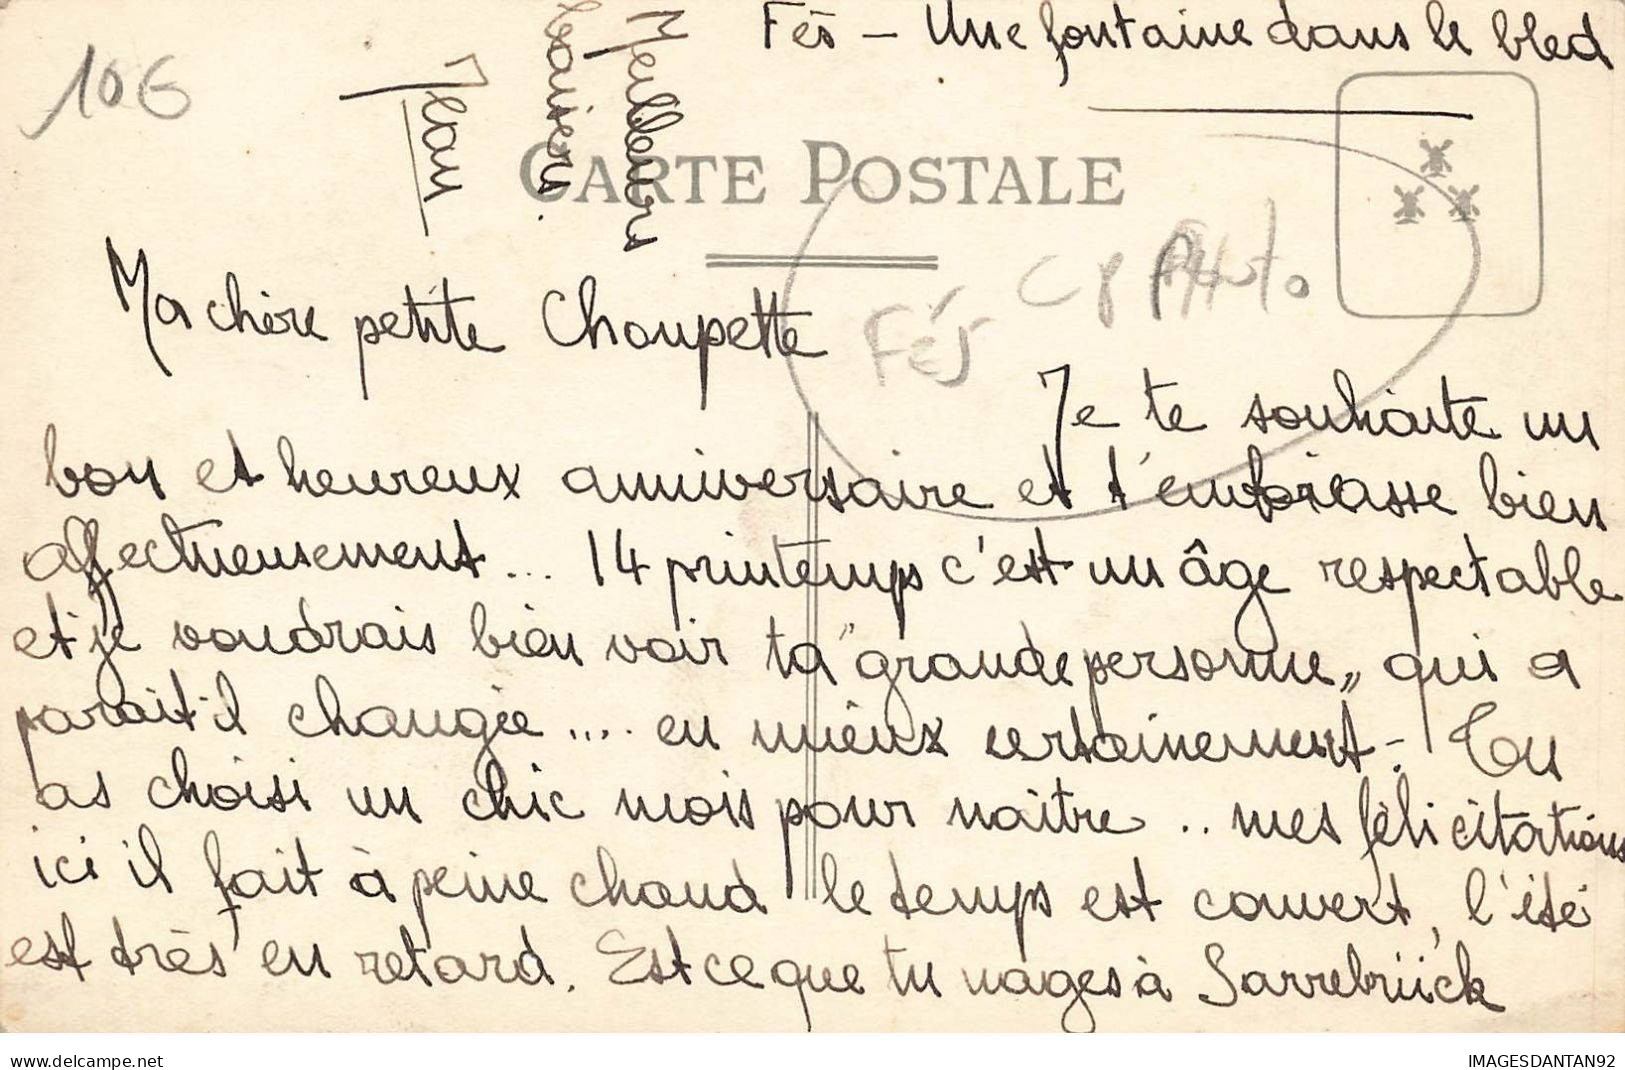 Fés – Une fontaine dans le bled
10€
CARTE POSTALE
Meilleurs
baisers.
Jean
CP Photo
Fés
Ma chère petite Choupette
Je te souhaite un
bon et heureux anniversaire et t'embrasse bien
affectueusement... 14 printemps c'est un âge respectable
et je voudrais bien voir ta "grande personne" qui a
parait-il changée .... en mieux certainement - Tu
as choisi un chic mois pour naître .. mes félicitations
ici il fait à peine chaud le temps est couvert, l'été
est très en retard. Est ce que tu nages à Sarrebrück
www.delcampe.net
IMAGESDANTAN92